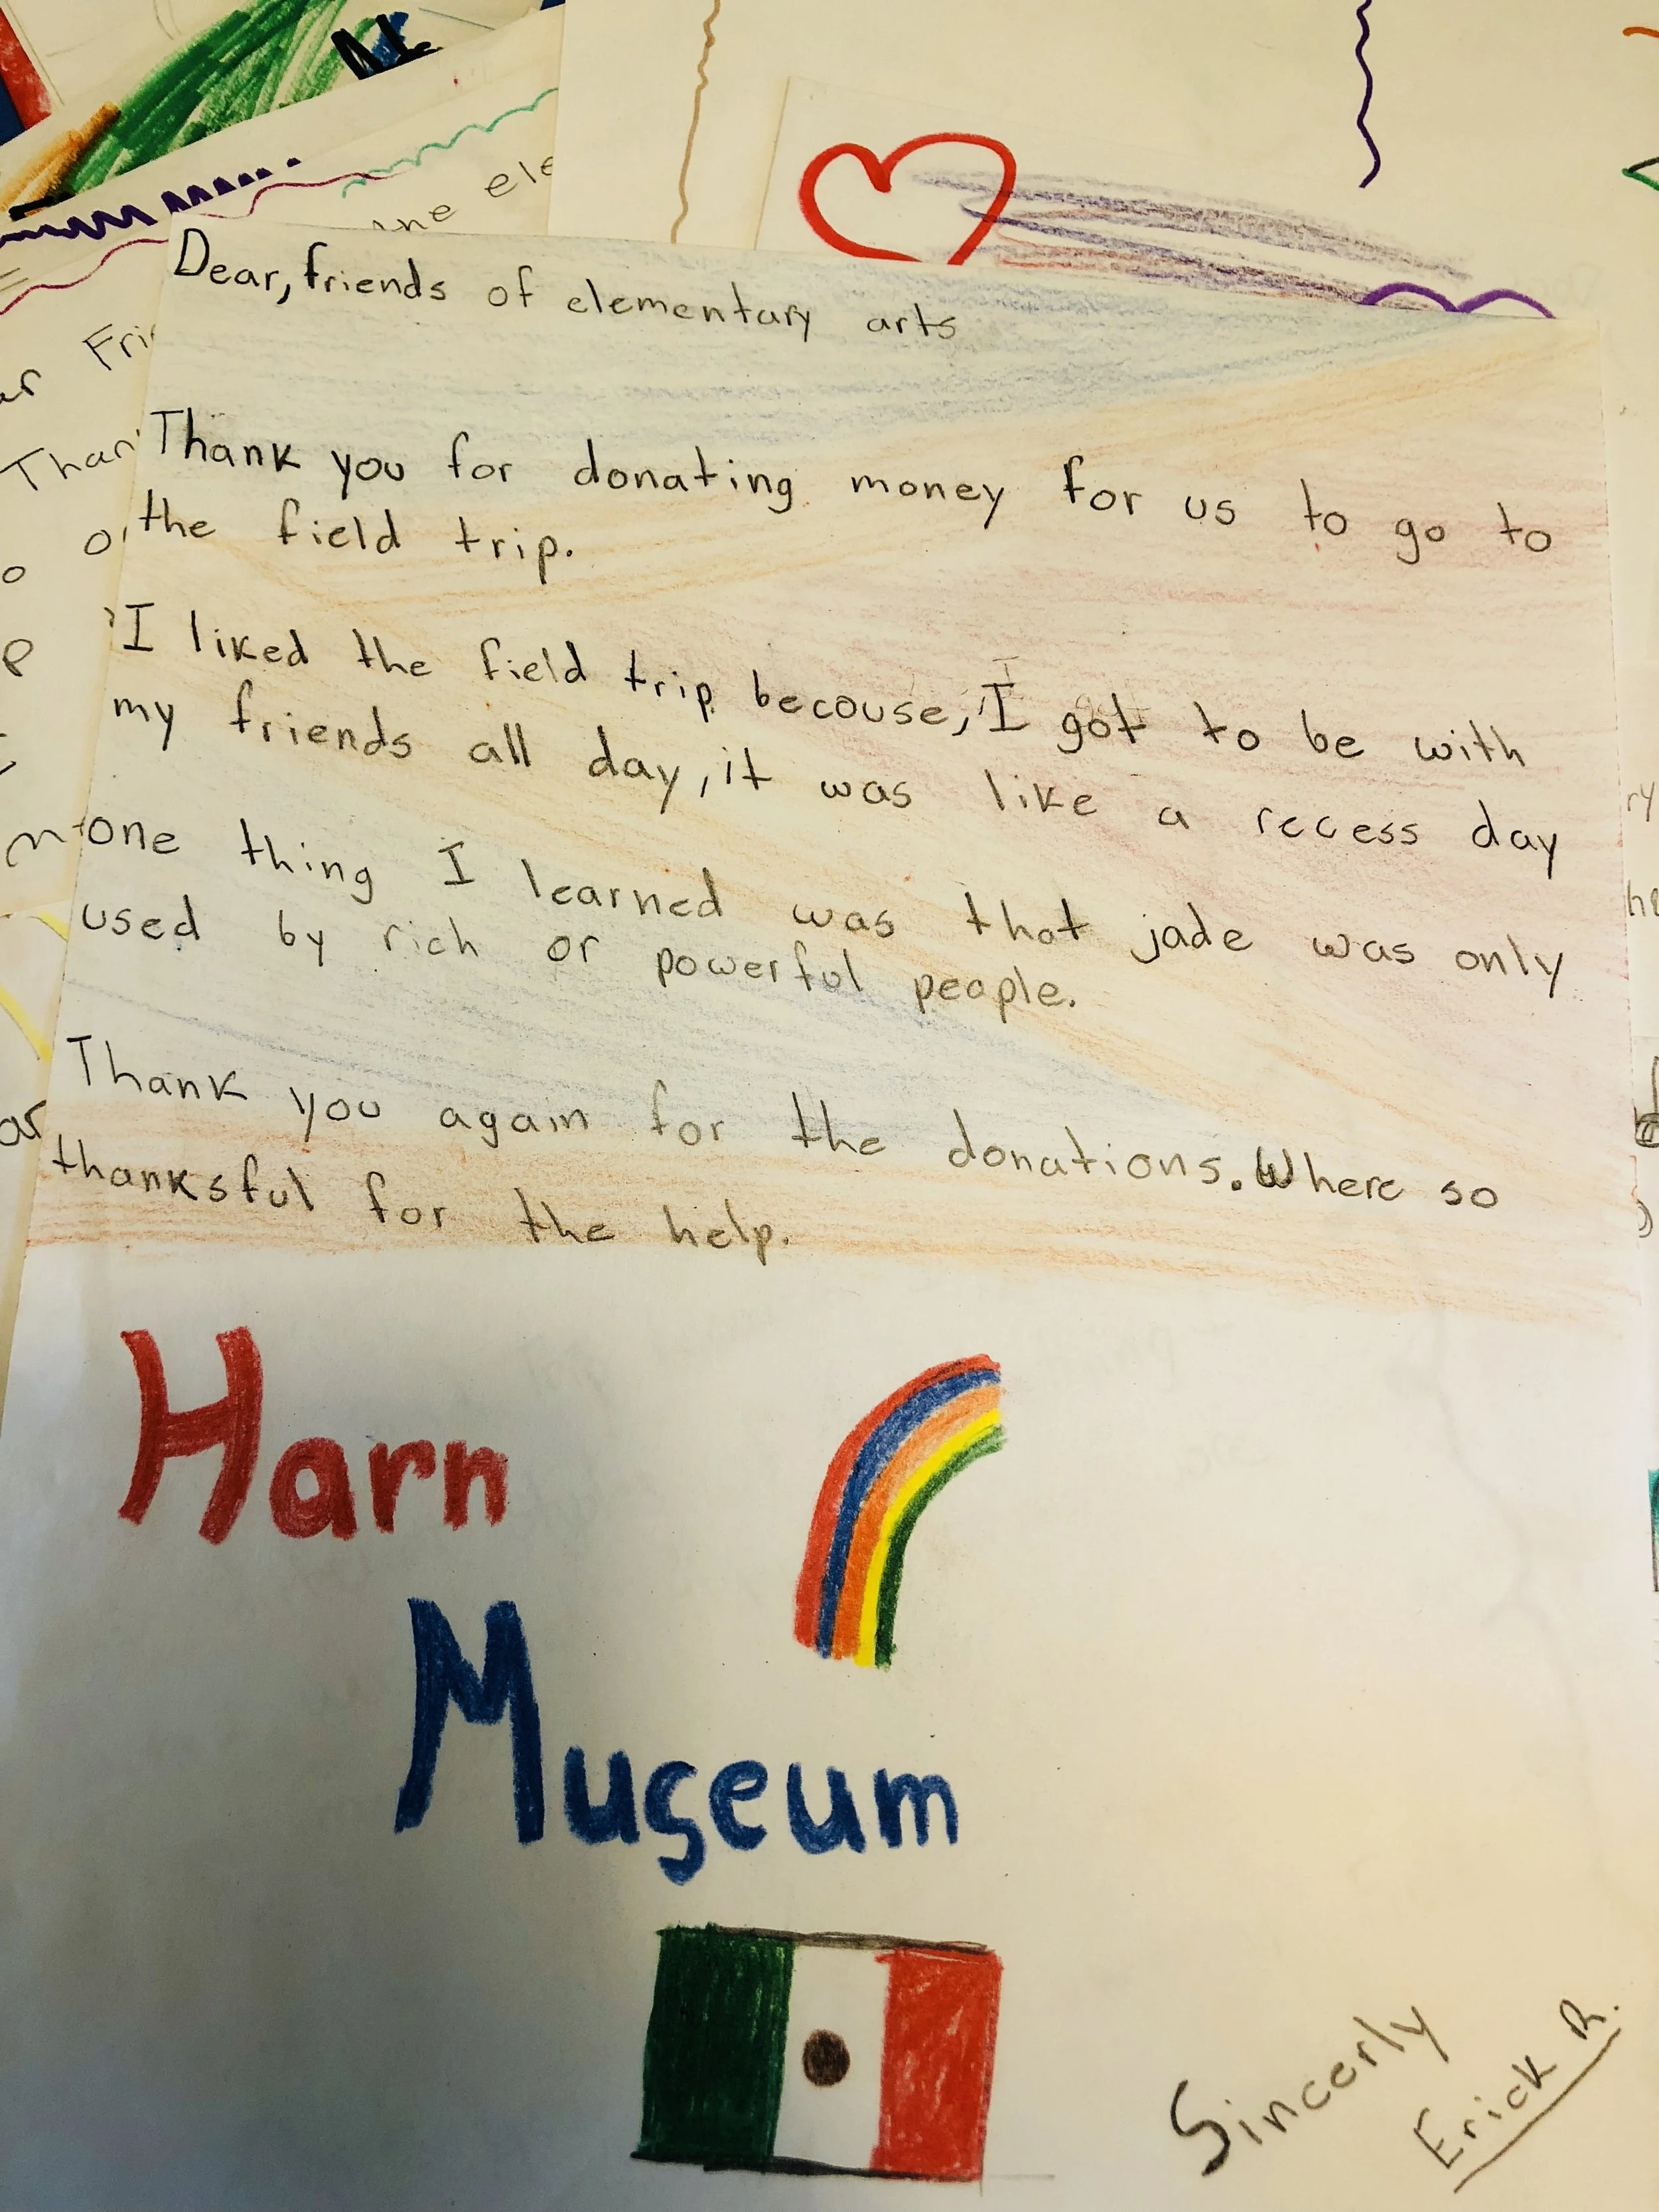 ele
the
Dear, friends of elementary arts
Thank you for donating money for us to go to
the field trip.
I liked the field trip becouse, I got to be with
my friends all day, it was like a recess day
one thing I learned was that jade was only
used by rich or powerful people.
Thank you again for the donations. Where so
thanksful for the help.
Harn
Museum
Sincerly
Erick R.